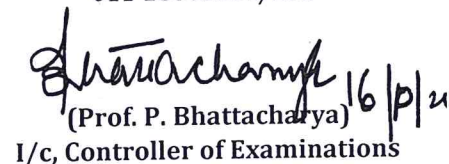 Bhattacharya
(Prof. P. Bhattacharya)
I/c, Controller of Examinations